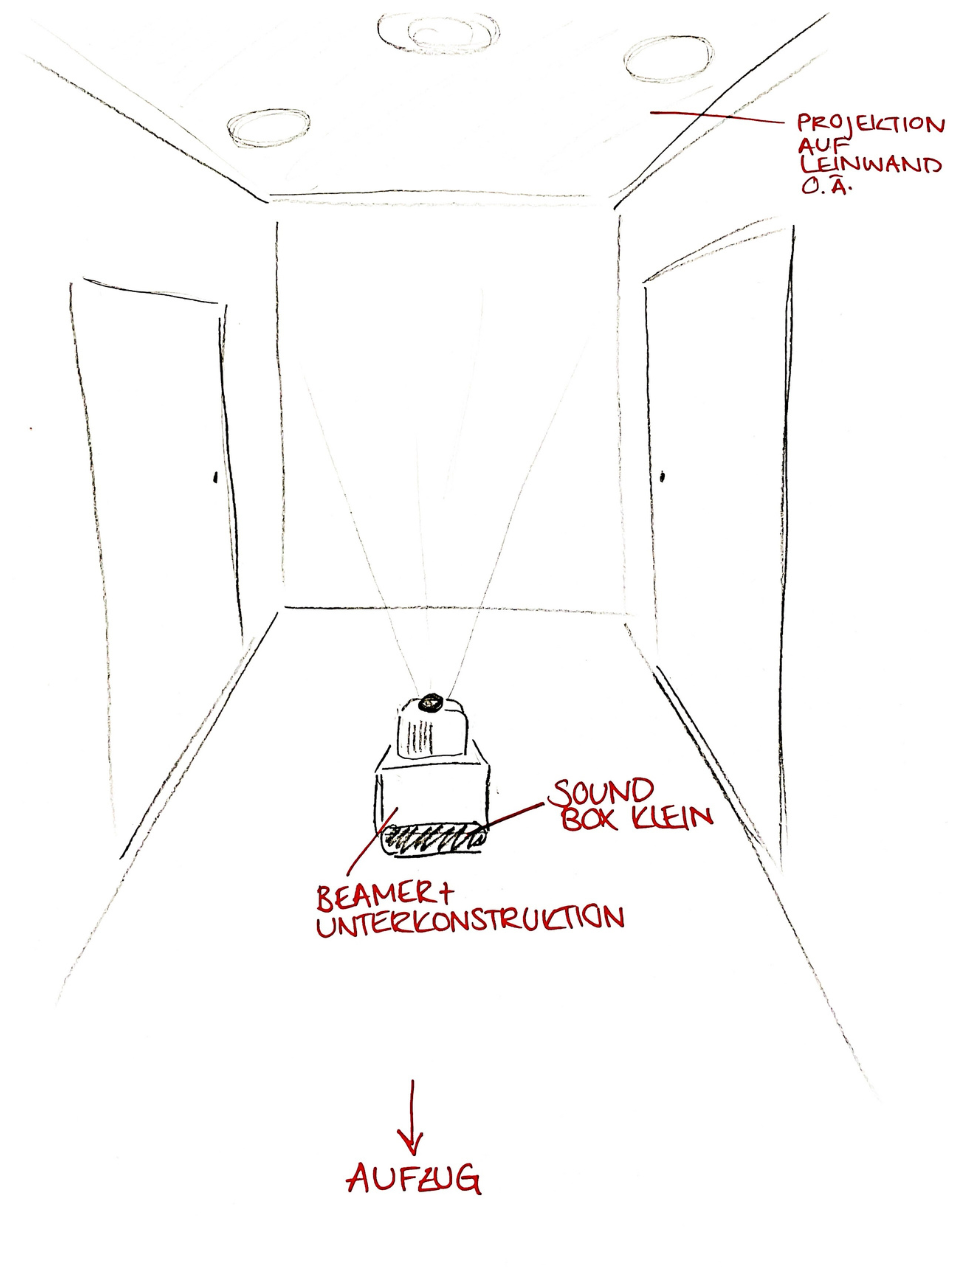 PROJEKTION
AUF
LEINWAND
O.Ä.
SOUND
BOX KLEIN
BEAMER+
UNTERKONSTRUKTION
AUFZUG